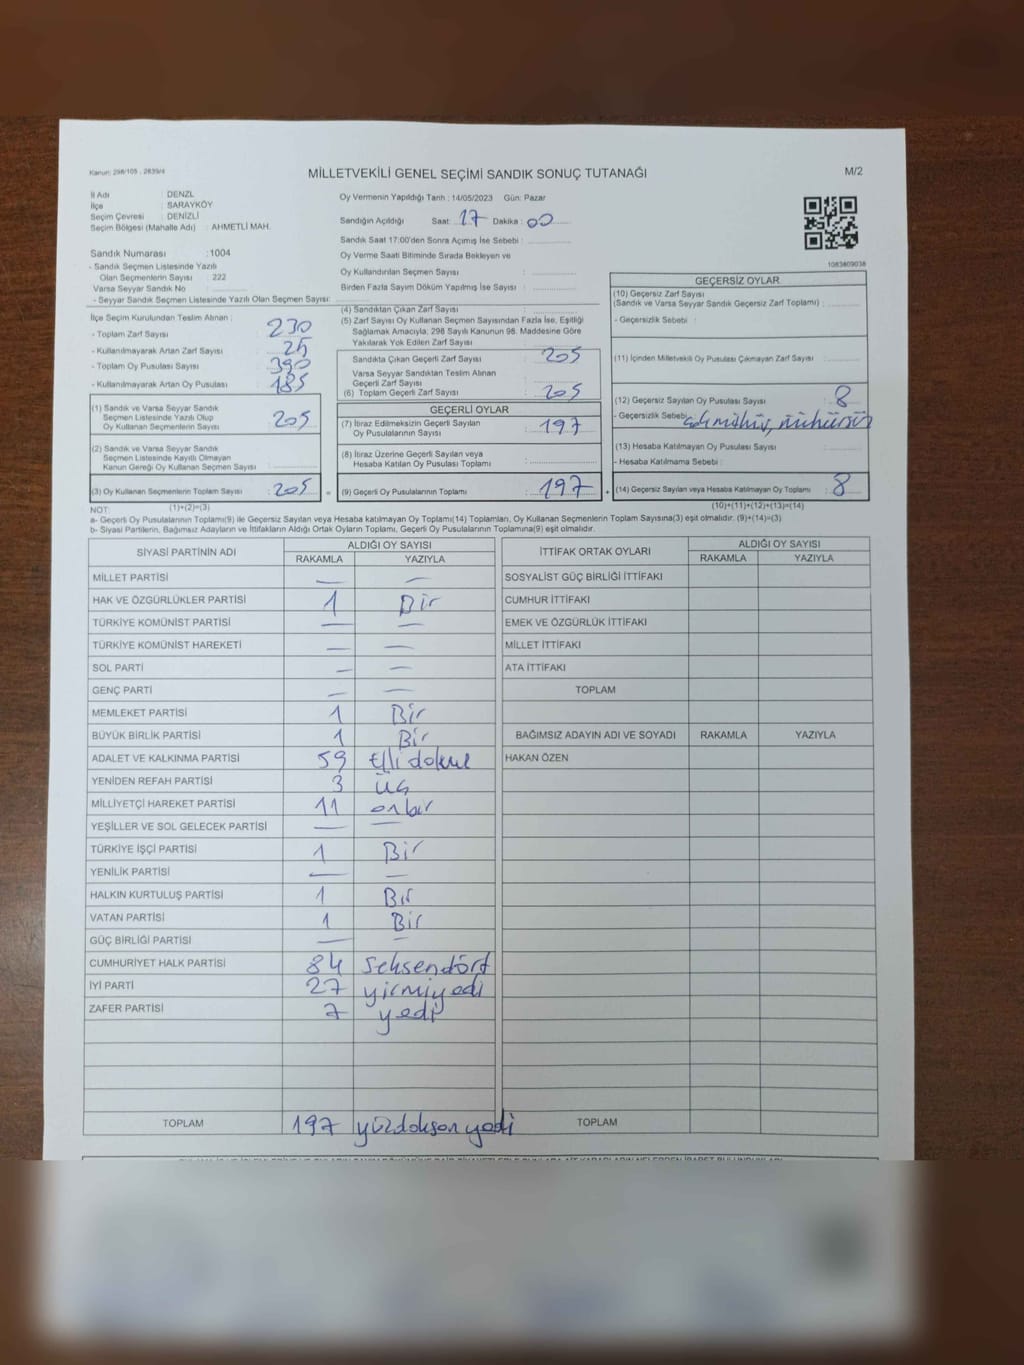 Kanun: 298/105 , 2839/4
MİLLETVEKİLİ GENEL SEÇİMİ SANDIK SONUÇ TUTANAĞI
M/2
İl Adı : DENZL
İlçe : SARAYKÖY
Seçim Çevresi : DENİZLİ
Seçim Bölgesi (Mahalle Adı) : AHMETLİ MAH.
Sandık Numarası : 1004
- Sandık Seçmen Listesinde Yazılı
Olan Seçmenlerin Sayısı : 222
Varsa Seyyar Sandık No :
- Seyyar Sandık Seçmen Listesinde Yazılı Olan Seçmen Sayısı:
Oy Vermenin Yapıldığı Tarih : 14/05/2023 Gün: Pazar
Sandığın Açıldığı Saat: 17 Dakika : 00
Sandık Saat 17:00'den Sonra Açımış İse Sebebi :
Oy Verme Saati Bitiminde Sırada Bekleyen ve
Oy Kullandırılan Seçmen Sayısı :
Birden Fazla Sayım Döküm Yapılmış İse Sayısı :
1083809038
İlçe Seçim Kurulundan Teslim Alınan :
- Toplam Zarf Sayısı 230
- Kullanılmayarak Artan Zarf Sayısı : 25
- Toplam Oy Pusulası Sayısı : 390
- Kullanılmayarak Artan Oy Pusulası : 185
(1) Sandık ve Varsa Seyyar Sandık
Seçmen Listesinde Yazılı Olup
Oy Kullanan Seçmenlerin Sayısı : 205
(2) Sandık ve Varsa Seyyar Sandık
Seçmen Listesinde Kayıtlı Olmayan
Kanun Gereği Oy Kullanan Seçmen Sayısı :
(3) Oy Kullanan Seçmenlerin Toplam Sayısı : 205
(1)+(2)=(3)
(4) Sandıktan Çıkan Zarf Sayısı :
(5) Zarf Sayısı Oy Kullanan Seçmen Sayısından Fazla İse, Eşitliği
Sağlamak Amacıyla, 298 Sayılı Kanunun 98. Maddesine Göre
Yakılarak Yok Edilen Zarf Sayısı :
Sandıkta Çıkan Geçerli Zarf Sayısı : 205
Varsa Seyyar Sandıktan Teslim Alınan
Geçerli Zarf Sayısı :
(6) Toplam Geçerli Zarf Sayısı : 205
GEÇERLİ OYLAR
(7) İtiraz Edilmeksizin Geçerli Sayılan
Oy Pusulalarının Sayısı : 197
(8) İtiraz Üzerine Geçerli Sayılan veya
Hesaba Katılan Oy Pusulası Toplamı :
(9) Geçerli Oy Pusulalarının Toplamı : 197
GEÇERSİZ OYLAR
(10) Geçersiz Zarf Sayısı
(Sandık ve Varsa Seyyar Sandık Geçersiz Zarf Toplamı) :
- Geçersizlik Sebebi :
(11) İçinden Milletvekili Oy Pusulası Çıkmayan Zarf Sayısı :
(12) Geçersiz Sayılan Oy Pusulası Sayısı : 8
- Geçersizlik Sebebi :
(13) Hesaba Katılmayan Oy Pusulası Sayısı :
- Hesaba Katılmama Sebebi :
(14) Geçersiz Sayılan veya Hesaba Katılmayan Oy Toplamı : 8
(10)+(11)+(12)+(13)=(14)
NOT:
a- Geçerli Oy Pusulalarının Toplamı(9) ile Geçersiz Sayılan veya Hesaba katılmayan Oy Toplamı(14) Toplamları, Oy Kullanan Seçmenlerin Toplam Sayısına(3) eşit olmalıdır. (9)+(14)=(3)
b- Siyasi Partilerin, Bağımsız Adayların ve İttifakların Aldığı Ortak Oyların Toplamı, Geçerli Oy Pusulalarının Toplamına(9) eşit olmalıdır.
SİYASİ PARTİNİN ADI ALDIĞI OY SAYISI
RAKAMLA YAZIYLA
MİLLET PARTİSİ — —
HAK VE ÖZGÜRLÜKLER PARTİSİ 1 Bir
TÜRKİYE KOMÜNİST PARTİSİ — —
TÜRKİYE KOMÜNİST HAREKETİ — —
SOL PARTİ — —
GENÇ PARTİ — —
MEMLEKET PARTİSİ 1 Bir
BÜYÜK BİRLİK PARTİSİ 1 Bir
ADALET VE KALKINMA PARTİSİ 59 Elli dokuz
YENİDEN REFAH PARTİSİ 3 üç
MİLLİYETÇİ HAREKET PARTİSİ 11 onbir
YEŞİLLER VE SOL GELECEK PARTİSİ — —
TÜRKİYE İŞÇİ PARTİSİ 1 Bir
YENİLİK PARTİSİ — —
HALKIN KURTULUŞ PARTİSİ 1 Bir
VATAN PARTİSİ 1 Bir
GÜÇ BİRLİĞİ PARTİSİ — —
CUMHURİYET HALK PARTİSİ 84 Seksendört
İYİ PARTİ 27 yirmiyedi
ZAFER PARTİSİ 7 yedi
TOPLAM 197 yüzdoksan yedi
İTTİFAK ORTAK OYLARI ALDIĞI OY SAYISI
RAKAMLA YAZIYLA
SOSYALİST GÜÇ BİRLİĞİ İTTİFAKI
CUMHUR İTTİFAKI
EMEK VE ÖZGÜRLÜK İTTİFAKI
MİLLET İTTİFAKI
ATA İTTİFAKI
TOPLAM
BAĞIMSIZ ADAYIN ADI VE SOYADI RAKAMLA YAZIYLA
HAKAN ÖZEN
TOPLAM